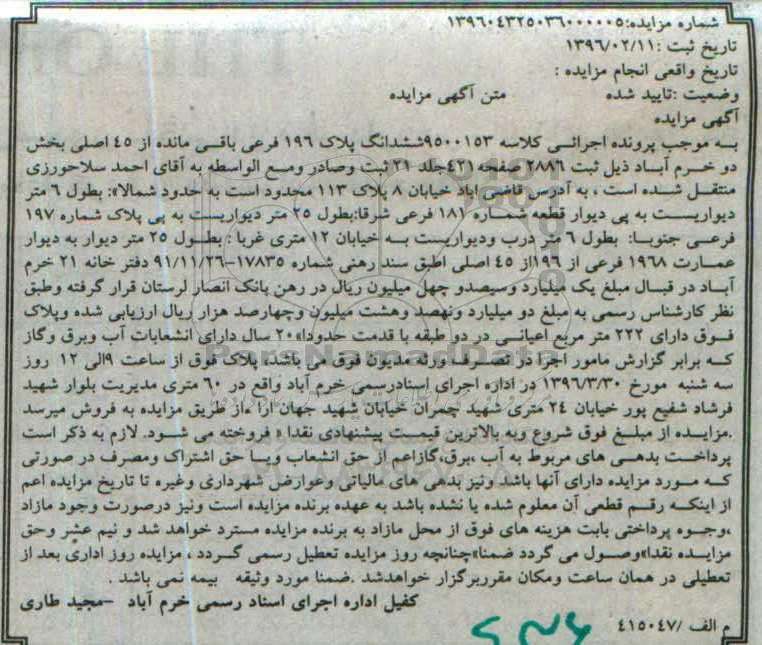 شماره مزایده:۱۳۹۶۰۴۳۲۵۰۳۶۰۰۰۰۰۵
تاریخ ثبت :۱۳۹۶/۰۲/۱۱
تاریخ واقعی انجام مزایده :
وضعیت :تایید شده متن آگهی مزایده
آگهی مزایده
به موجب پرونده اجرائی کلاسه ۹۵۰۰۱۵۳ششدانگ پلاک ۱۹۶ فرعی باقی مانده از ٤٥ اصلی بخش
دو خرم آباد ذیل ثبت ۲۸۸۶ صفحه ٤٢١جلد ۲۱ ثبت وصادر ومع الواسطه به آقای احمد سلاحورزی
منتقل شده است ، به آدرس قاضی اباد خیابان ۸ پلاک ۱۱۳ محدود است به حدود شمالا»: بطول ٦ متر
دیواریست به پی دیوار قطعه شماره ۱۸۱ فرعی شرقا:بطول ۲۵ متر دیواریست به پی پلاک شماره ۱۹۷
فرعی جنوبا: بطول ٦ متر درب ودیواریست به خیابان ۱۲ متری غربا : بطول ۲۵ متر دیوار به دیوار
عمارت ۱۹۶۸ فرعی از ۱۹۶از ٤٥ اصلی اطبق سند رهنی شماره ۱۷۸۳۵-۹۱/۱۱/۲۶ دفتر خانه ۲۱ خرم
آباد در قبال مبلغ یک میلیارد وسیصدو چهل میلیون ریال در رهن بانک انصار لرستان قرار گرفته وطبق
نظر کارشناس رسمی به مبلغ دو میلیارد ونهصد وهشت میلیون وچهارصد هزار ریال ارزیابی شده وپلاک
فوق دارای ۲۲۲ متر مربع اعیانی در دو طبقه با قدمت حدودا»۲۰ سال دارای انشعابات آب وبرق وگاز
که برابر گزارش مامور اجرا در تصرف ورثه مدیون فوق می باشد. پلاک فوق از ساعت ۹الی ۱۲ روز
سه شنبه مورخ ۱۳۹۶/۳/۳۰ در اداره اجرای اسنادرسمی خرم آباد واقع در ٦٠ متری مدیریت بلوار شهید
فرشاد شفیع پور خیابان ۲٤ متری شهید چمران خیابان شهید جهان ارا ،از طریق مزایده به فروش میرسد
.مزایده از مبلغ فوق شروع وبه بالاترین قیمت پیشنهادی نقدا » فروخته می شود. لازم به ذکر است
پرداخت بدهی های مربوط به آب ،برق،گازاعم از حق انشعاب ویا حق اشتراک ومصرف در صورتی
که مورد مزایده دارای آنها باشد ونیز بدهی های مالیاتی وعوارض شهرداری وغیره تا تاریخ مزایده اعم
از اینکه رقم قطعی آن معلوم شده یا نشده باشد به عهده برنده مزایده است ونیز درصورت وجود مازاد
،وجوه پرداختی بابت هزینه های فوق از محل مازاد به برنده مزایده مسترد خواهد شد و نیم عشر وحق
مزایده نقدا»وصول می گردد ضمنا»چنانچه روز مزایده تعطیل رسمی گردد ، مزایده روز اداری بعد از
تعطیلی در همان ساعت ومکان مقرربرگزار خواهدشد .ضمنا مورد وثیقه بیمه نمی باشد .
کفیل اداره اجرای اسناد رسمی خرم آباد -مجید طاری
م الف /٤١٥٠٤٧
ParsNamadData